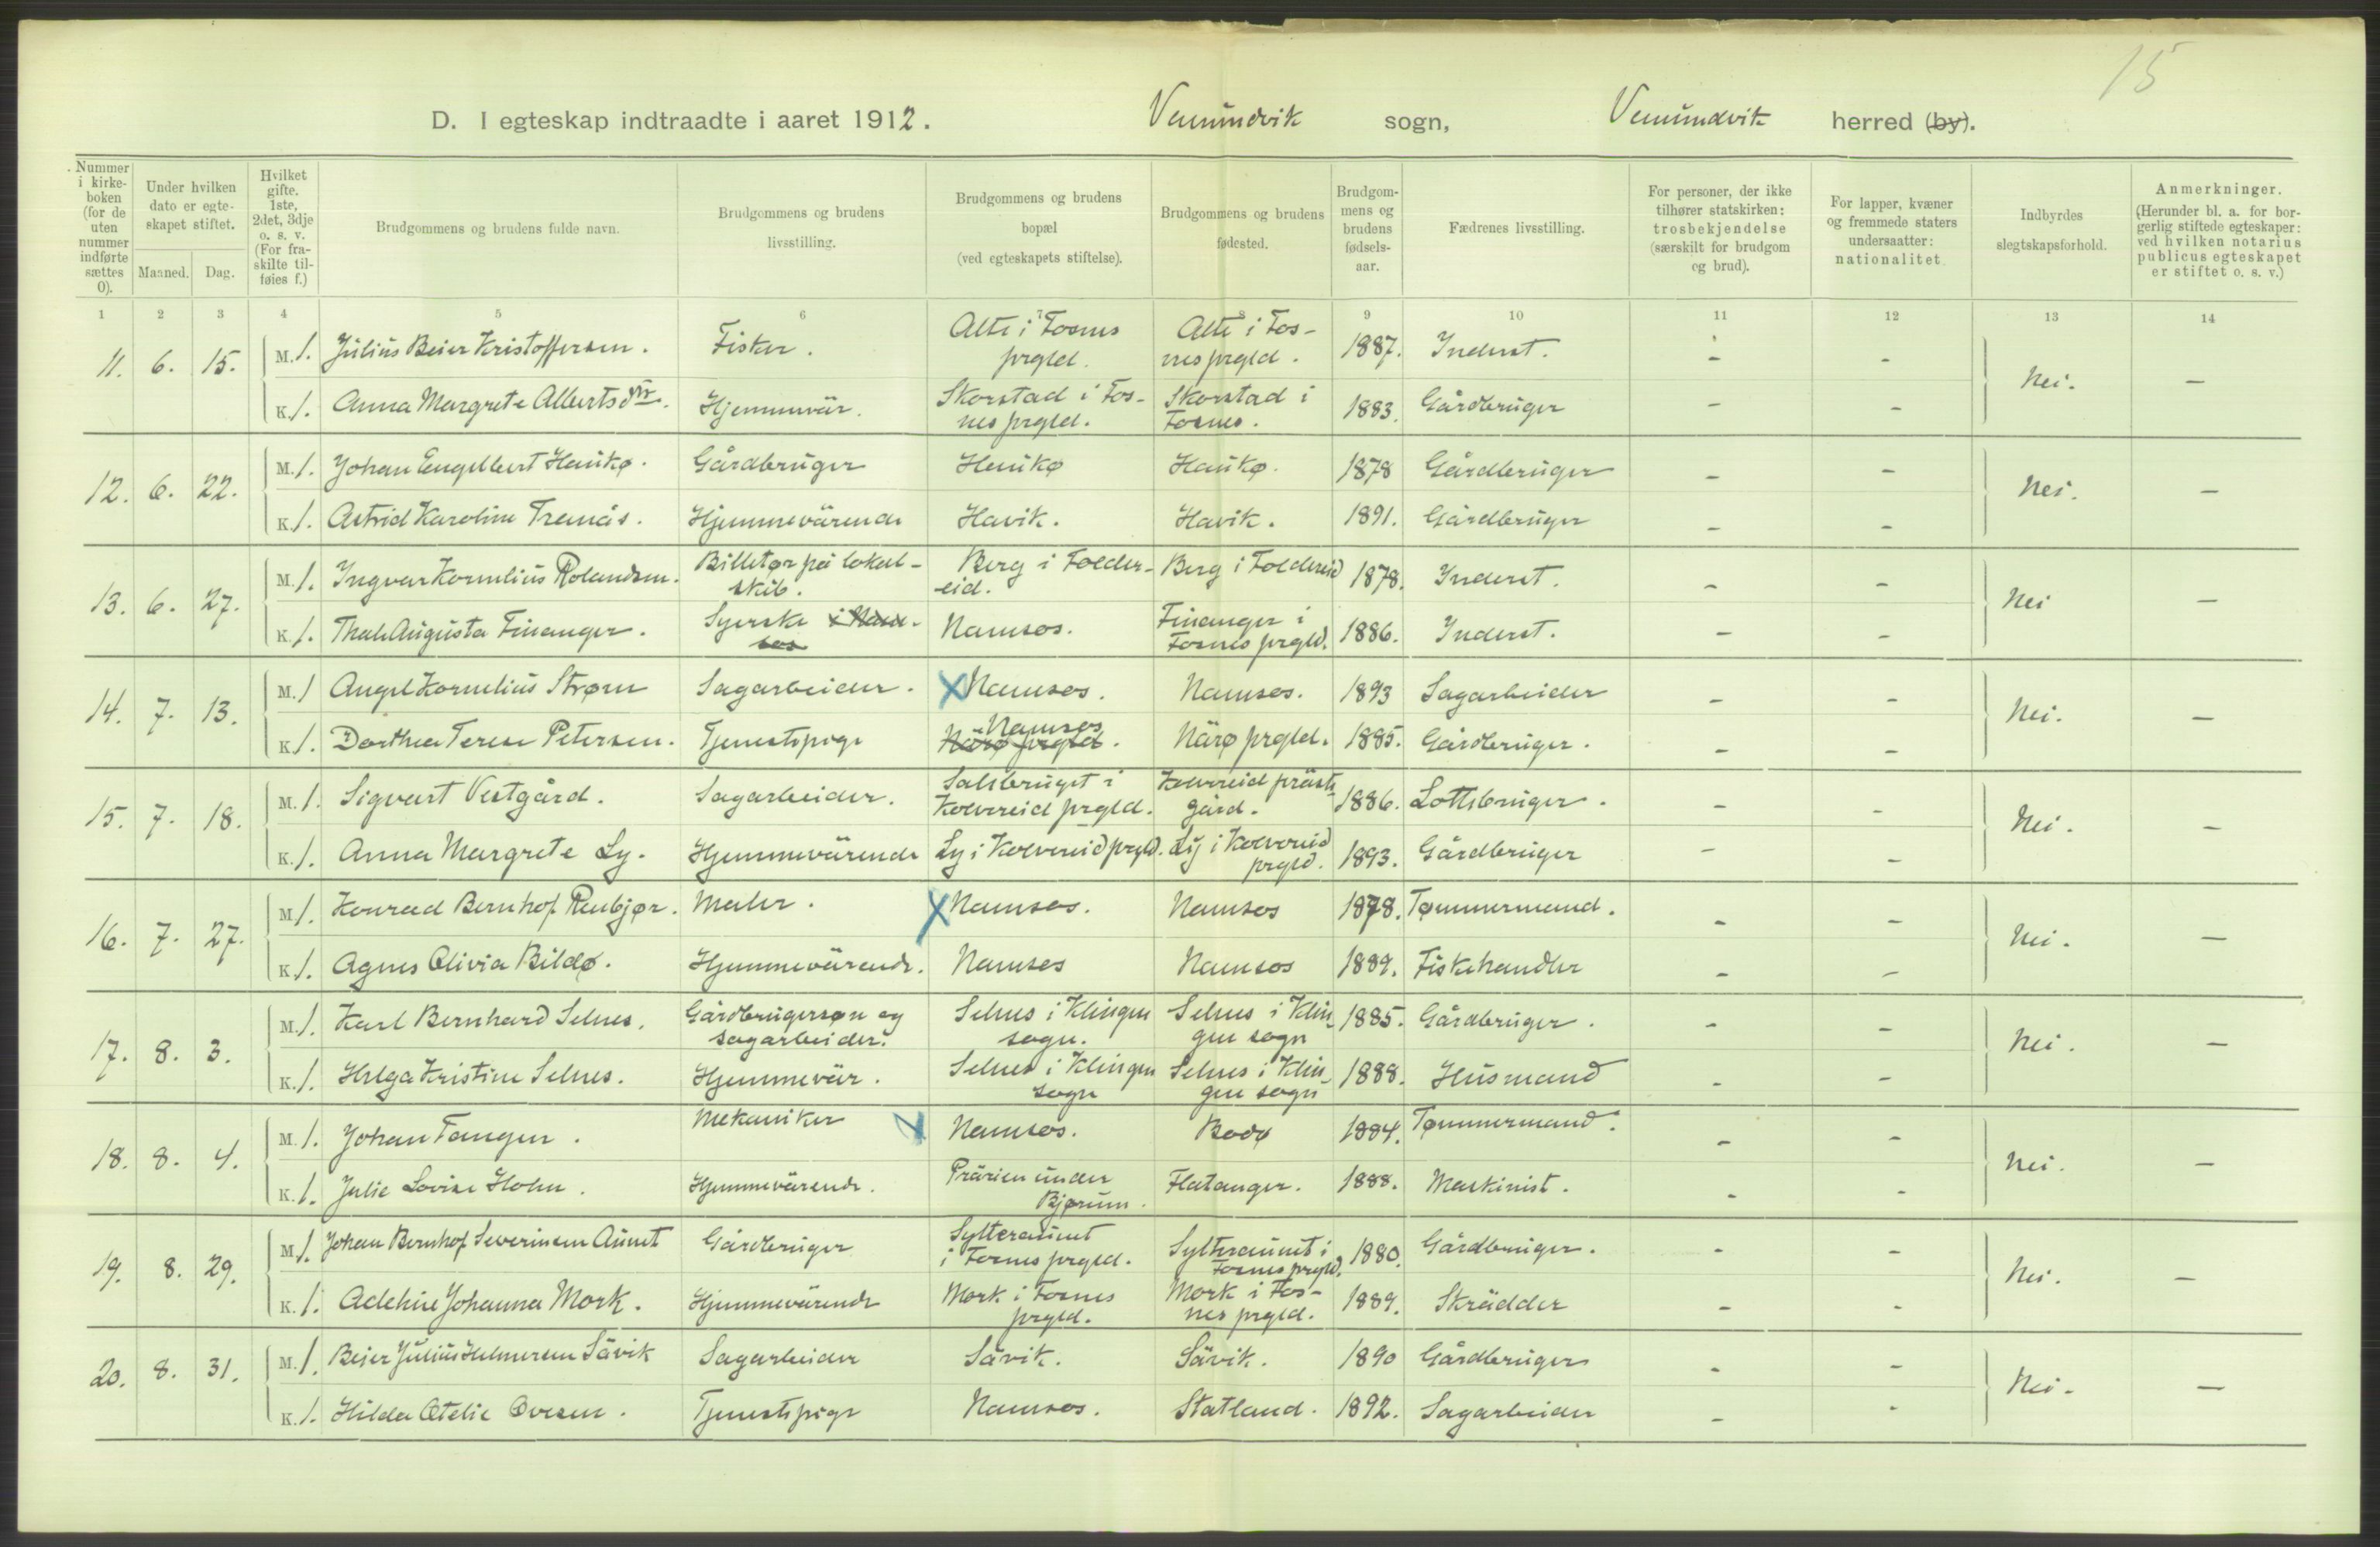 15
D. I egteskap indtraadte i aaret 1912. Vemundvik sogn, Vemundvik herred (by).
Nummer i kirke-boken (for de uten nummer indførte sættes 0). Under hvilken dato er egte-skapet stiftet. Maaned. Dag. Hvilket gifte. 1ste, 2det, 3dje o. s. v. (For fra-skilte til-føies f.) Brudgommens og brudens fulde navn. Brudgommens og brudens livsstilling. Brudgommens og brudens bopæl (ved egteskapets stiftelse). Brudgommens og brudens fødested. Brudgom-mens og brudens fødsels-aar. Fædrenes livsstilling. For personer, der ikke tilhører statskirken: trosbekjendelse (særskilt for brudgom og brud). For lapper, kvæner og fremmede staters undersaatter: nationalitet. Indbyrdes slegtskapsforhold. Anmerkninger. (Herunder bl. a. for bor-gerlig stiftede egteskaper: ved hvilken notarius publicus egteskapet er stiftet o. s. v.)
1 2 3 4 5 6 7 8 9 10 11 12 13 14
11. 6. 15. M. 1. Julius Beier Kristoffersen. Fisker. Alte i Fosnes prgld. Alte i Fos-nes prgld. 1887. Inderst. - - Nei. -
K. 1. Anna Margrete Albertsdtr. Hjemmevär. Skorstad i Fos-nes prgld. Skorstad i Fosnes. 1883. Gårdbruger - -
12. 6. 22. M. 1. Johan Engelbert Haukø. Gårdbruger Haukø Haukø. 1878 Gårdbruger - - Nei. -
K. 1. Astrid Karoline Tranås. Hjemmevärende Havik. Havik. 1891. Gårdbruger - -
13. 6. 27. M. 1. Ingvar Kornelius Rolandsen. Billetør på lokal-skib. Berg i Folder-eid. Berg i Foldereid 1878. Inderst. - - Nei -
K. 1. Thale Augusta Finanger. Syerske i Nam-sos Namsos. Finanger i Fosnes prgld. 1886. Inderst. - -
14. 7. 13. M. 1 Angel Kornelius Strøm Sagarbeider. X Namsos. Namsos. 1893 Sagarbeider - - Nei. -
K. 1. Dorthea Terese Petersen. Tjenestepige Namsos Närø prgld. Närø prgld. 1885. Gårdbruger. - -
15. 7. 18. M. 1. Sigvart Vestgård. Sagarbeider. Salsbruget i Kolvereid prgld. Kolvereid präste-gård. 1886. Lottsbruger. - - Nei. -
K. 1. Anna Margrete Ly. Hjemmevärende Ly i Kolvereid prgld. Ly i Kolvereid prgld. 1893. Gårdbruger - -
16. 7. 27. M. 1. Konrad Bernhof Renbjør. Maler. X Namsos. Namsos 1878. Tømmermand. - - Nei. -
K. 1. Agnes Olivia Bildø. Hjemmevärende. Namsos Namsos 1889. Fiskehandler - -
17. 8. 3. M. 1. Karl Bernhard Selnes. Gårdbrugersøn og sagarbeider. Selnes i Klingen sogn. Selnes i Klin-gen sogn 1885. Gårdbruger. - - Nei. -
K. 1. Helga Kristine Selnes. Hjemmevär. Selnes i Klingen sogn Selnes i Klin-gen sogn 1888. Husmand - -
18. 8. 4. M. 1. Johan Tangen. Mekaniker X Namsos. Bodø 1884. Tømmermand. - - Nei. -
K. 1. Julie Lovise Holm. Hjemmevärende. Prärien under Bjørum. Flatanger. 1888. Maskinist. - -
19. 8. 29. M. 1. Johan Bernhof Severinsen Aunet Gårdbruger Sylteraunet i Fosnes prgld. Sylteraunet i Fosnes prgld. 1880. Gårdbruger. - - Nei. -
K. 1. Adeline Johanna Mork. Hjemmevärende Mork i Fosnes prgld. Mork i Fos-nes prgld. 1889. Skrädder - -
20. 8. 31. M. 1. Beier Julius Helmersen Sävik Sagarbeider Sävik. Sävik. 1890 Gårdbruger - - Nei. -
K. 1. Hilda Otelie Ovesen. Tjenestepige Namsos. Statland. 1892. Sagarbeider - -